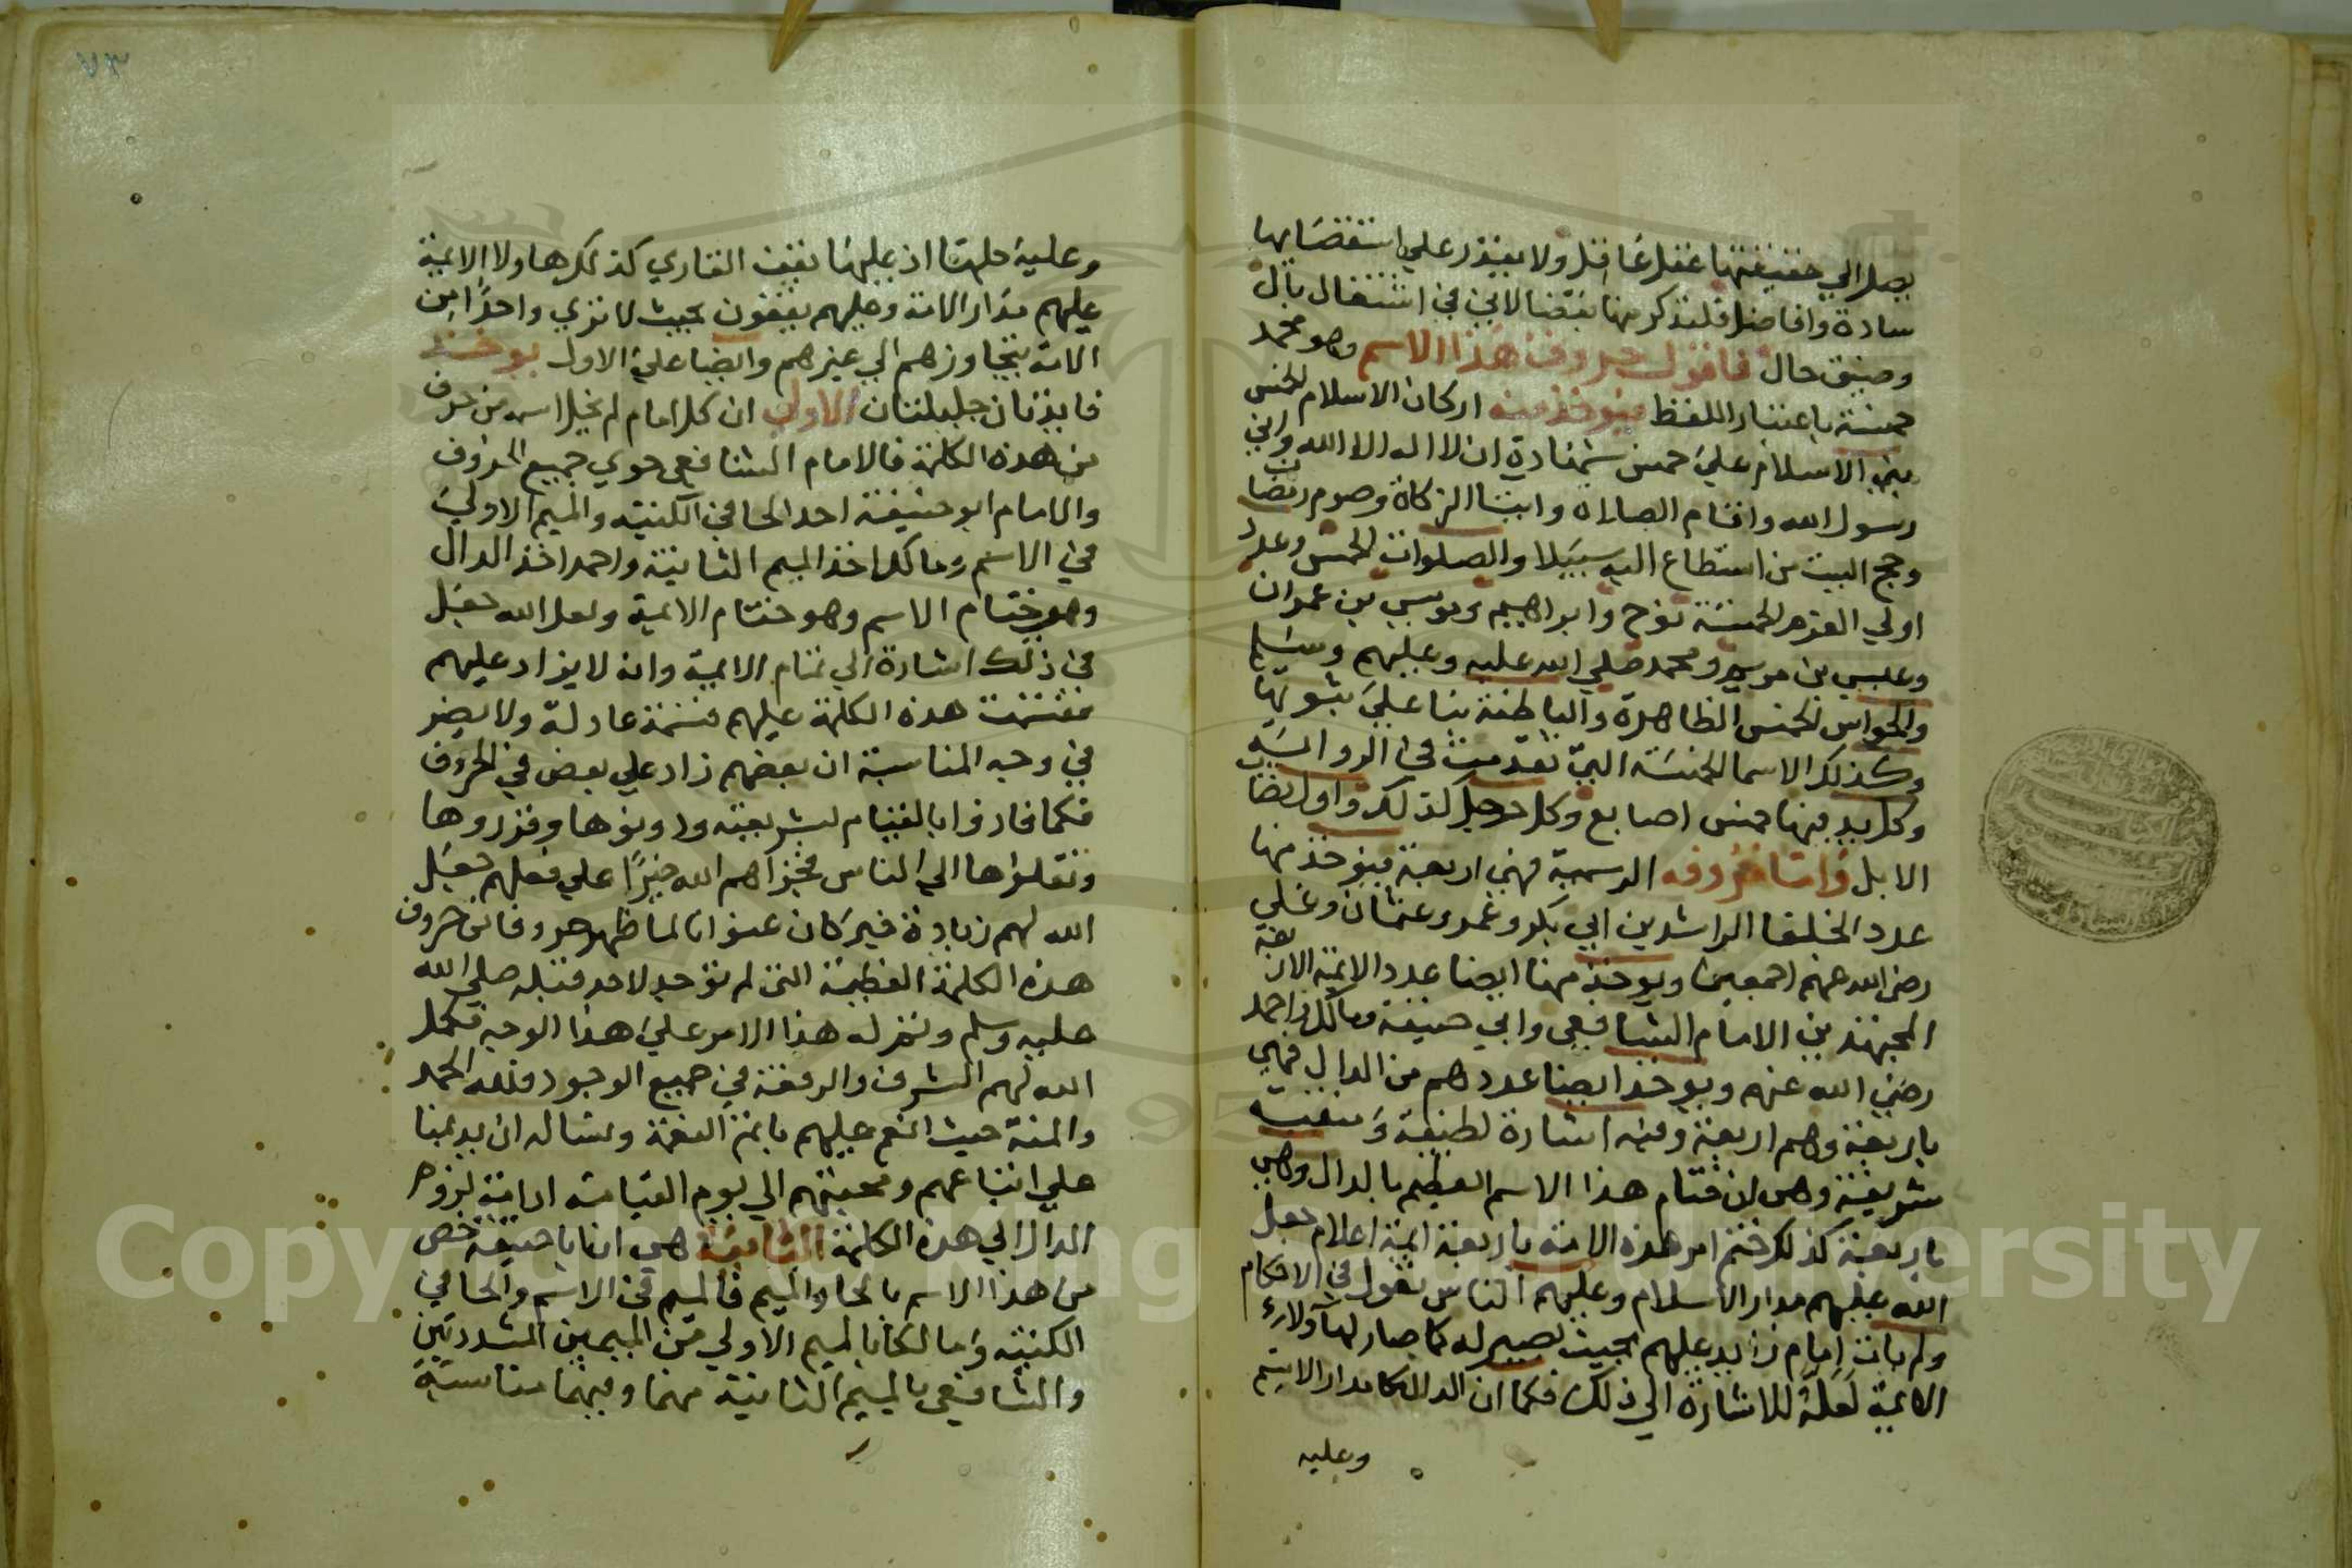 يصل الي حقيقتها عقل عاقل ولا يقدر علي استقصايها
سادة وافاضل فلنذكر منها بعضا لاني في اشتغال بال
وضيق حال فاقول حروف هذا الاسم وهو محمد
خمسة باعتبار اللفظ فيوخذ منه اركان الاسلام الخمس
بني الاسلام علي خمس شهادة ان لا اله الا الله واني
رسول الله واقام الصلاة وايتا الزكاة وصوم رمضان
وحج البيت من استطاع اليه سبيلا والصلوات الخمس وعدد
اولي العزم الخمسة نوح وابراهيم وموسي بن عمران
وعيسي بن مريم ومحمد صلي الله عليه وعليهم وسلم
والحواس الخمس الظاهرة والباطنة بنا علي ثبوتها
وكذلك الاسما الخمسة التي تقدمت في الرواية
وكل يد فيها خمس اصابع وكل رجل كذلك واول نصاب
الابل واما حروفه الرسمية فهي اربعة فيوخذ منها
عدد الخلفا الراشدين ابي بكر وعمر وعثمان وعلي
رضي الله عنهم اجمعين ويوخذ منها ايضا عدد الايمة الاربعة
المجتهدين الامام الشافعي وابي حنيفة ومالك واحمد
رضي الله عنهم ويوخذ ايضا عددهم من الدال فهي
باربعة وهم اربعة وفيه اشارة لطيفة ومنقبة
شريفة وهي ان ختام هذا الاسم العظيم بالدال وهي
باربعة كذلك ختم امر هذه الامة باربعة ايمة اعلام جعل
الله عليهم مدار الاسلام وعليهم الناس تعول في الاحكام
ولم يات امام زايد عليهم بحيث يصير له كما صار لهاولاء
الايمة لعله للاشارة الي ذلك فكما ان الدال كامدار الاسم
وعليه
٧٣
وعليه حلها اذ عليها يقف القاري كذلك هاولا الايمة
عليهم مدار الامة وعليهم يقفون بحيث لا تري واحدا من
الامة يتجاوزهم الي غيرهم وايضا علي الاول يوخذ
فايدتان جليلتان الاولي ان كل امام لم يخل اسمه من حرف
من هذه الكلمة فالامام الشافعي حوي جميع الحروف
والامام ابو حنيفة احد الحا في الكنية والميم الاولي
في الاسم ومالك اخذ الميم الثانية واحمد اخذ الدال
وهو ختام الاسم وهو ختام الايمة ولعل الله جعل
في ذلك اشارة الي تمام الايمة وانه لا يزاد عليهم
فقسمت هذه الكلمة عليهم قسمة عادلة ولا يضر
في وجه المناسبة ان بعضهم زاد علي بعض في الحروف
فكما فازوا بالقيام بشريعته ودونوها وقرروها
ونقلوها الي الناس فجزاهم الله خيرا علي فعلهم جعل
الله لهم زيادة خير كان عنوانا لما ظهر حروفا من حروف
هذه الكلمة العظيمة التي لم توجد لاحد قبله صلي الله
عليه وسلم ونزل هذا الامر علي هذا الوجه فكمل
الله لهم الشرف والرفعة في جميع الوجود فلله الحمد
والمنة حيث انعم عليهم باتم النعمة ونساله ان يديمنا
علي اتباعهم ومحبتهم الي يوم القيامة ادامة لزوم
الدال الي هذه الكلمة الثانية هي ان ابا حنيفة خص
من هذا الاسم بالحا والميم فالميم في الاسم والحا في
الكنية ومالكا بالميم الاولي من الميمين المشددتين
والشافعي بالميم الثانية منهما وفيهما مناسبة
Copyright © King University